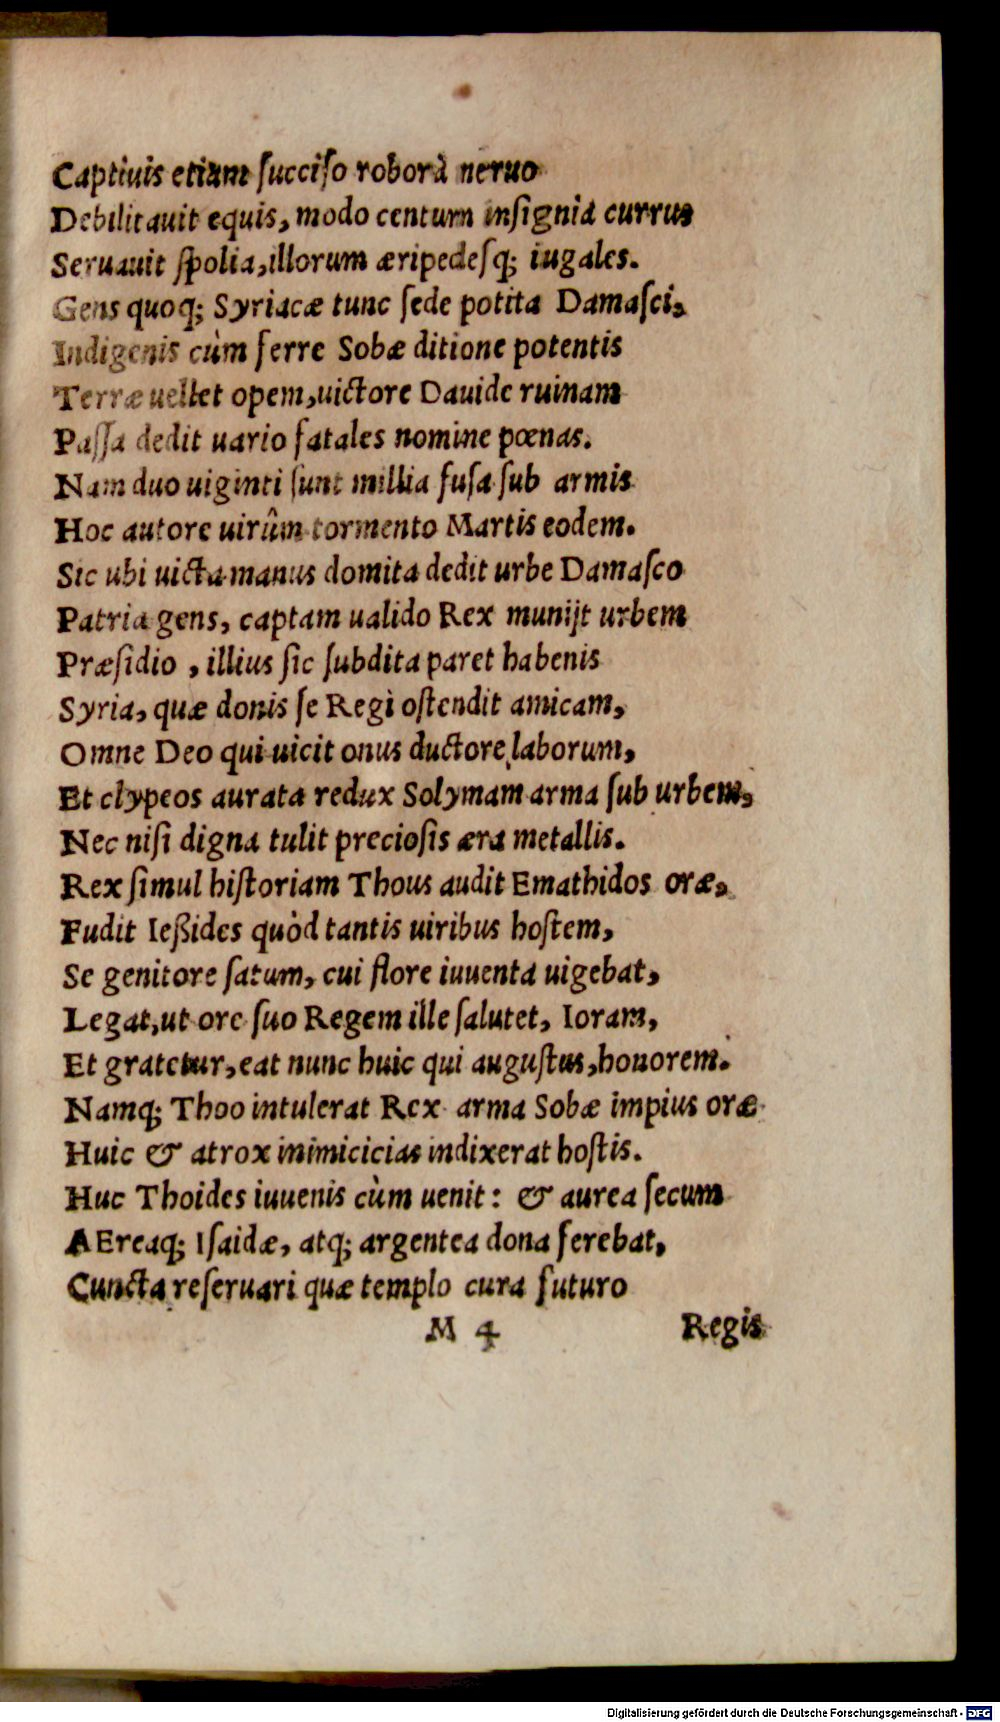 Captiuis etiam ſucciſo robora neruo
Debilitauit equis, modo centum inſignia currus
Seruauit ſpolia, illorum æripedesq; iugales.
Gens quoq; Syriacæ tunc ſede potita Damaſci,
Indigenis cùm ferre Sobæ ditione potentis
Terræ uellet opem, uictore Dauide ruinam
Paſſa dedit uario fatales nomine pœnas.
Nam duo uiginti ſunt millia fuſa ſub armis
Hoc autore uirûm tormento Martis eodem.
Sic ubi uicta manus domita dedit urbe Damaſco
Patria gens, captam ualido Rex munijt urbem
Præſidio, illius ſic ſubdita paret habenis
Syria, quæ donis ſe Regi oſtendit amicam,
Omne Deo qui uicit onus ductore laborum,
Et clypeos aurata redux Solymam arma ſub urbem,
Nec niſi digna tulit precioſis æra metallis.
Rex ſimul hiſtoriam Thous audit Emathidos oræ,
Fudit Ießides quòd tantis uiribus hoſtem,
Se genitore ſatum, cui flore iuuenta uigebat,
Legat, ut ore ſuo Regem ille ſalutet, Ioram,
Et gratetur, eat nunc huic qui auguſtus, honorem.
Namq; Thoo intulerat Rex arma Sobæ impius oræ
Huic & atrox inimicicias indixerat hoſtis.
Huc Thoides iuuenis cùm uenit: & aurea ſecum
AEreaq; Iſaidæ, atq; argentea dona ferebat,
Cuncta reſeruari quæ templo cura futuro
M 4 Regis
Digitalisierung gefördert durch die Deutsche Forschungsgemeinschaft - DFG